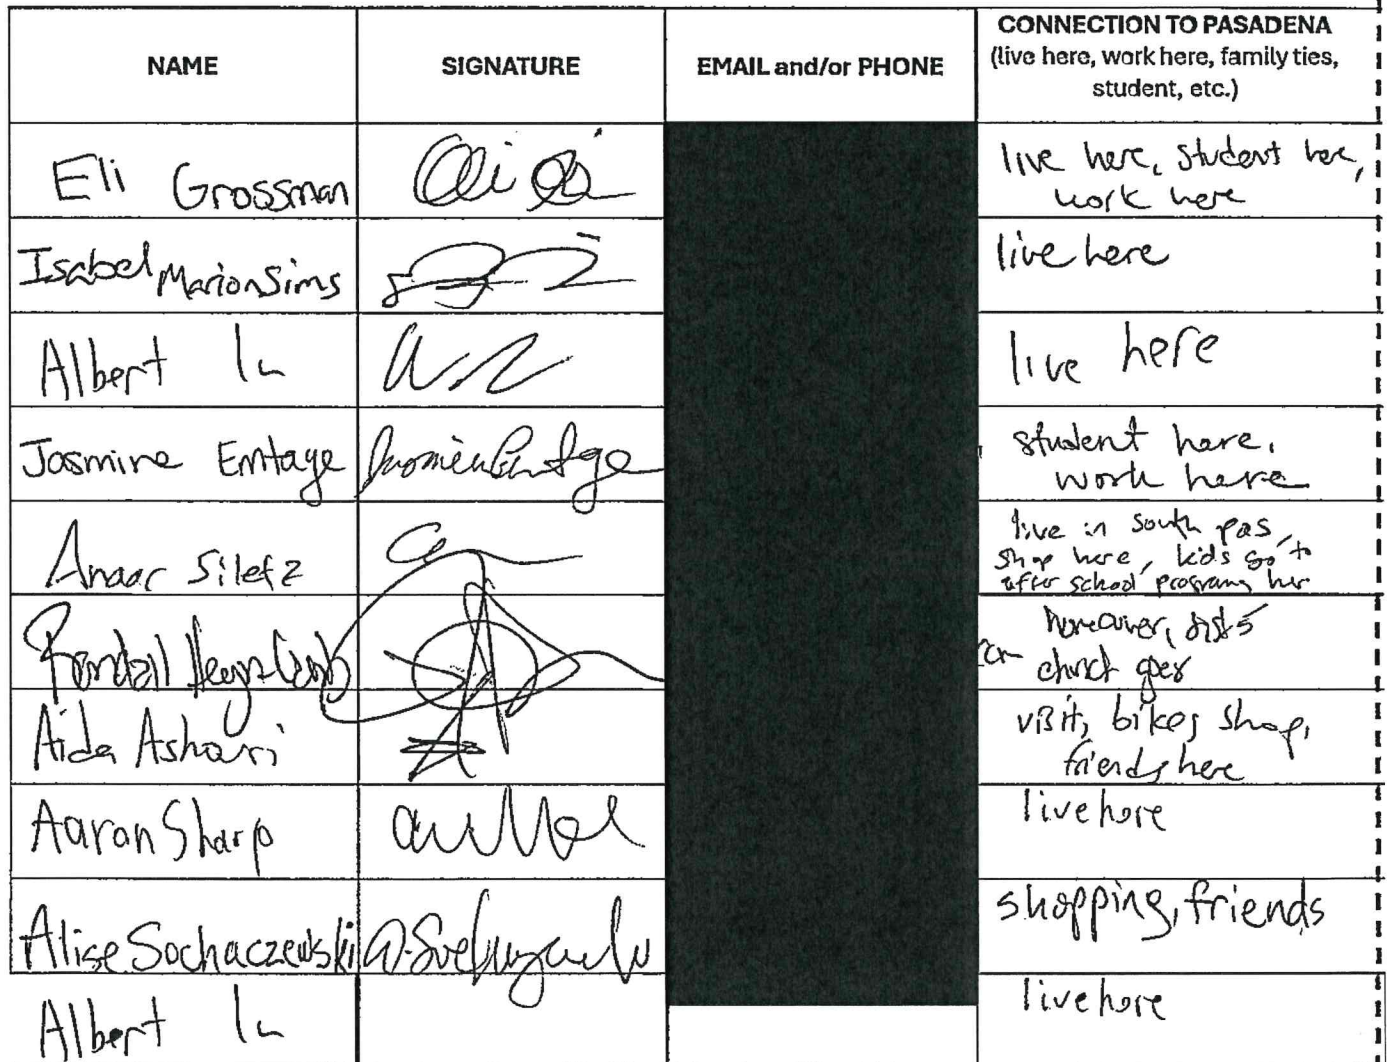 NAME
SIGNATURE
EMAIL and/or PHONE
CONNECTION TO PASADENA
(live here, work here, family ties,
student, etc.)
Eli Grossman
live here, student here,
work here
Isabel Marion Sims
live here
Albert
live here
Jasmine Emtage
student here,
work here
Anaar Siletz
live in south pas,
shop here, kids go to
after school programs her
Randall
homeowner,
church goer
Aida Ashouri
visit, bikes, shop,
friends here
Aaron Sharp
live here
Alise Sochaczewski
shopping, friends
Albert
live here